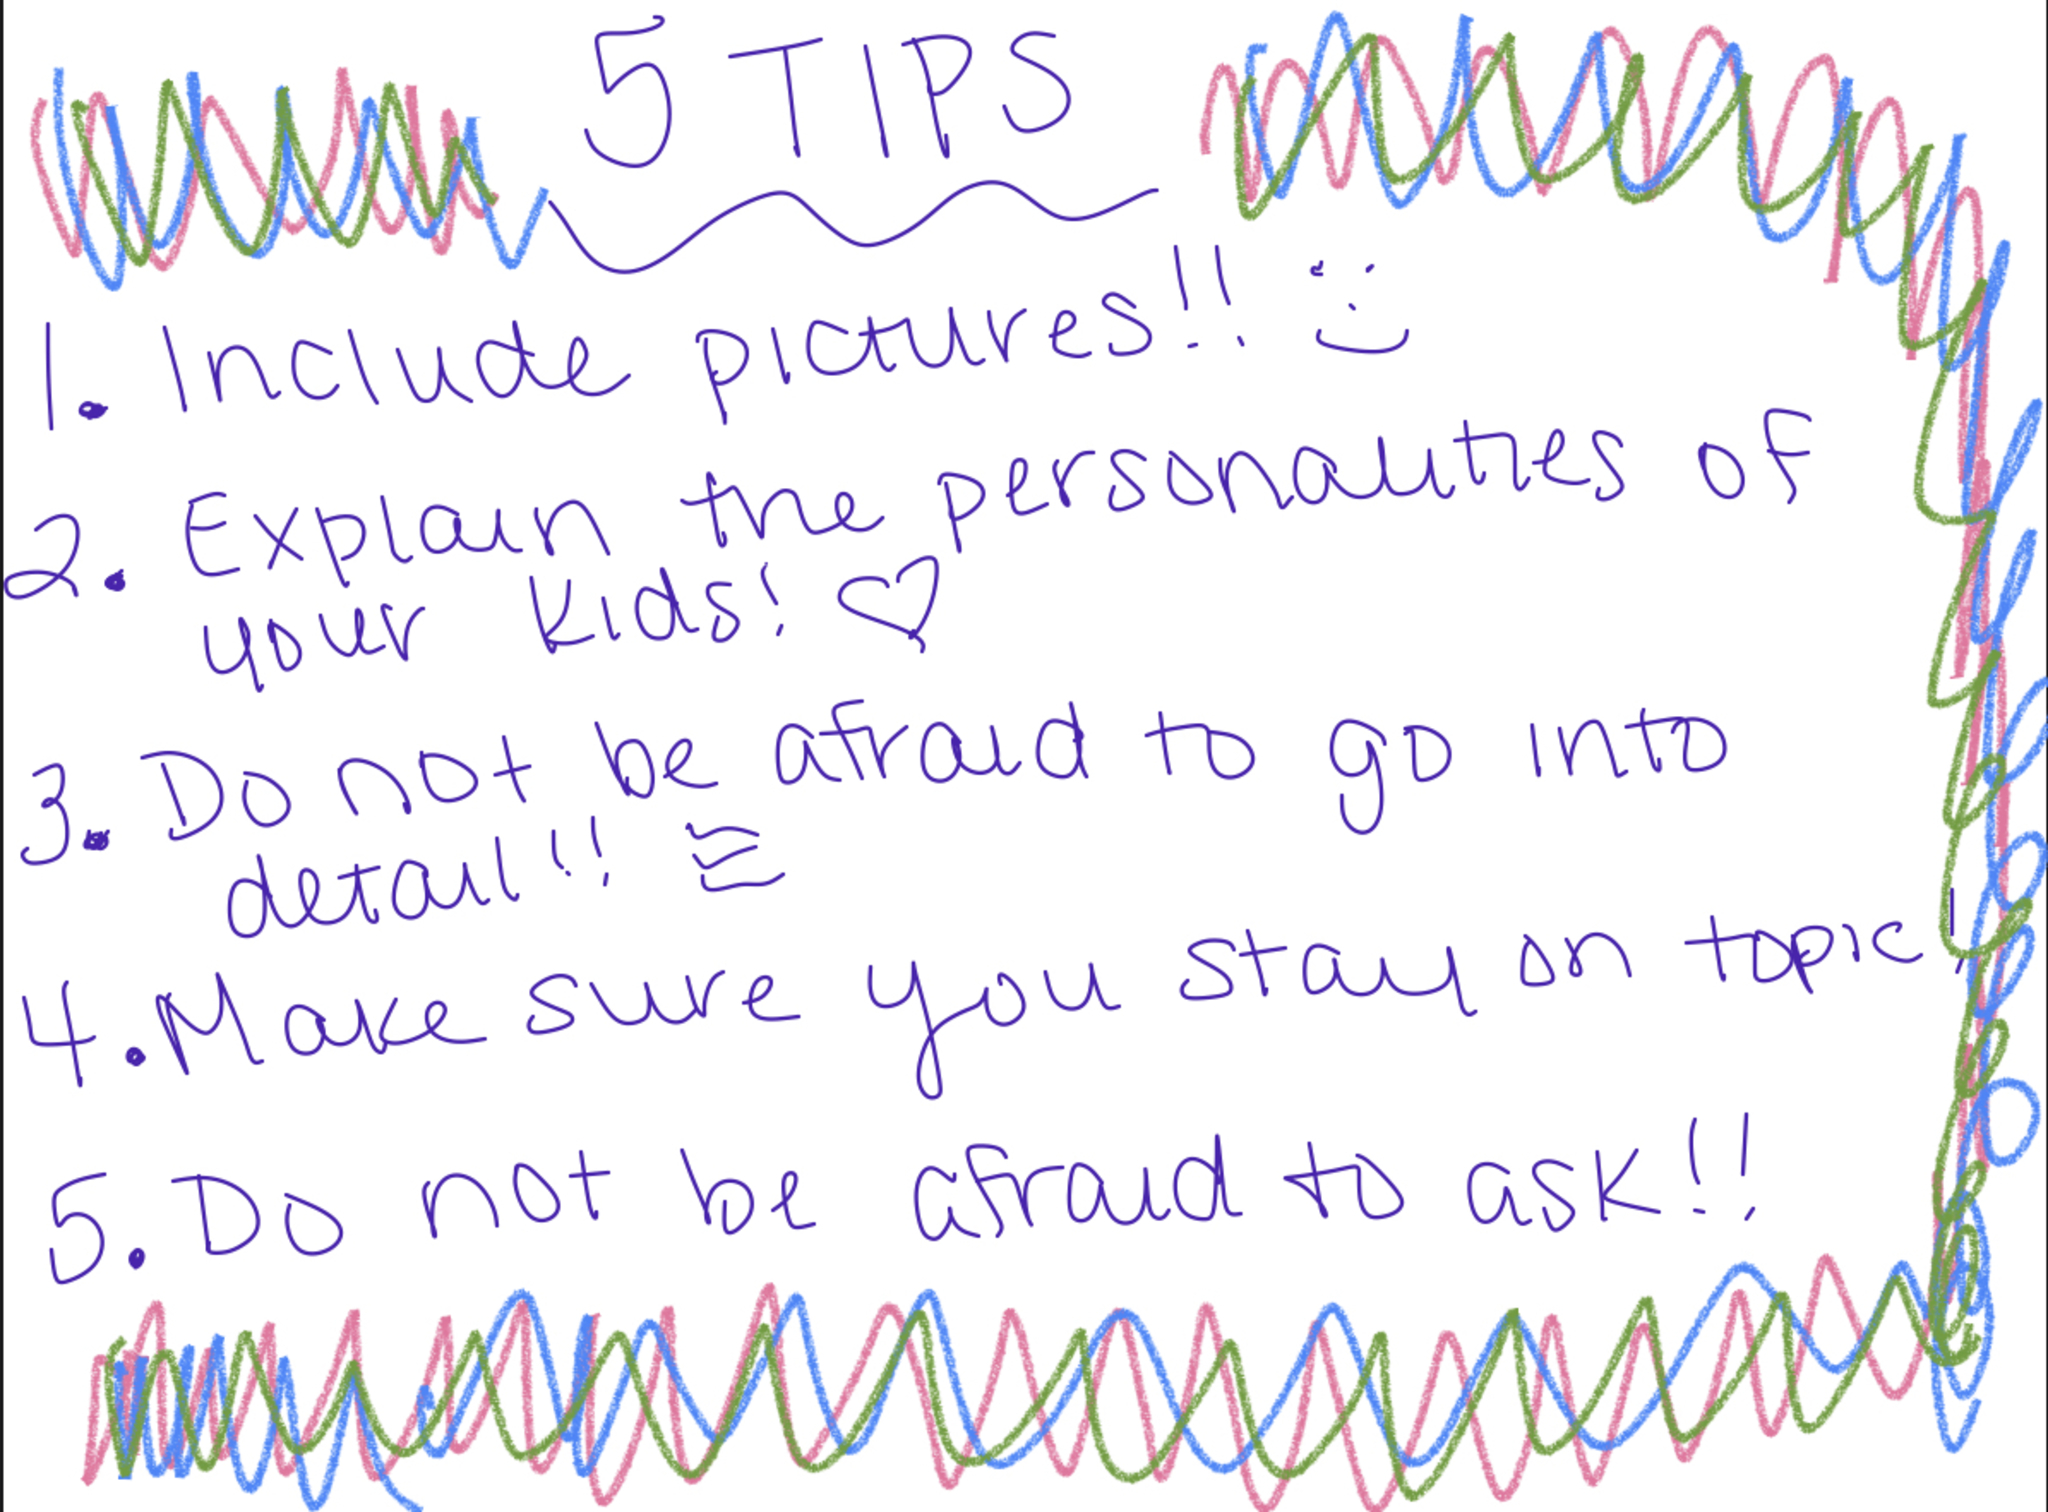 5 TIPS
1. Include pictures!!
2. Explain the personalities of
your kids!
3. Do not be afraid to go into
detail!!
4. Make sure you stay on topic!
5. Do not be afraid to ask!!